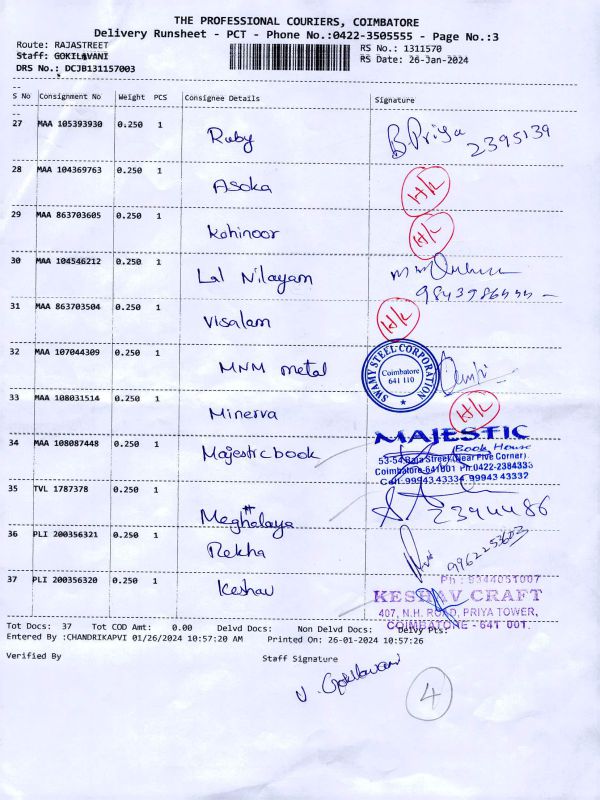 THE PROFESSIONAL COURIERS, COIMBATORE
Delivery Runsheet - PCT - Phone No.:0422-3505555 - Page No.:3
Route: RAJASTREET RS No.: 1311570
Staff: GOKILAVANI RS Date: 26-Jan-2024
DRS No.: DCJB131157003
S No Consignment No Weight PCS Consignee Details Signature
27 MAA 105393930 0.250 1 Ruby B Priya 2395139
28 MAA 104369763 0.250 1 Asoka H/L
29 MAA 863703605 0.250 1 Kohinoor H/L
30 MAA 104546212 0.250 1 Lal Nilayam
31 MAA 863703504 0.250 1 Visalam H/L
32 MAA 107044309 0.250 1 MNM metal
SWAMI STEEL CORPORATION
Coimbatore
641 110
33 MAA 108031514 0.250 1 Minerva H/L
34 MAA 108087448 0.250 1 Majestic book
MAJESTIC
Book House
53-54 Raja Street (Near Five Corner)
Coimbatore-641001 Ph:0422-2384333
Cell: 99943 43334, 99943 43332
35 TVL 1787378 0.250 1 Meghalaya 2394486
36 PLI 200356321 0.250 1 Rekha 9962253603
37 PLI 200356320 0.250 1 Keshav
KESHAV CRAFT
407, N.H. ROAD, PRIYA TOWER,
COIMBATORE - 641 001.
Tot Docs: 37 Tot COD Amt: 0.00 Delvd Docs: Non Delvd Docs: Delvy Pts:
Entered By :CHANDRIKAPVI 01/26/2024 10:57:20 AM Printed On: 26-01-2024 10:57:26
Verified By Staff Signature
V. Gokilavani
4